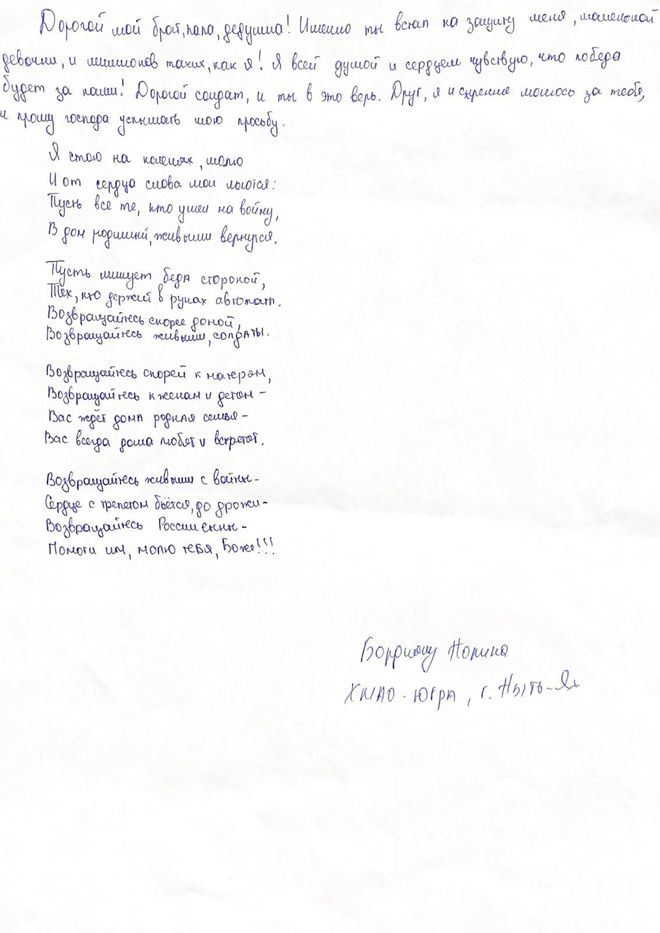 Дорогой мой брат, папа, дедушка! Именно ты встал на защиту меня, маленькой
девочки, и миллионов таких, как я! Я всей душой и сердцем чувствую, что победа
будет за нами! Дорогой солдат, и ты в это верь. Друг, я искренне молюсь за тебя,
и прошу господа услышать мою просьбу.
Я стою на коленях, молю
И от сердца слова мои льются:
Пусть все те, кто ушел на войну,
В дом родимый, живыми вернутся.
Пусть минует беда стороной,
Тех, кто держит в руках автомат.
Возвращайтесь скорее домой,
Возвращайтесь живыми, солдаты.
Возвращайтесь скорей к матерям,
Возвращайтесь к женам и детям -
Вас ждёт дома родная семья -
Вас всегда дома любят и встретят.
Возвращайтесь живыми с войны -
Сердце с трепетом бьётся, до дрожи -
Возвращайтесь России сыны -
Помоги им, молю тебя, Боже!!!
ХМАО-Югра, г. Пыть-Ях